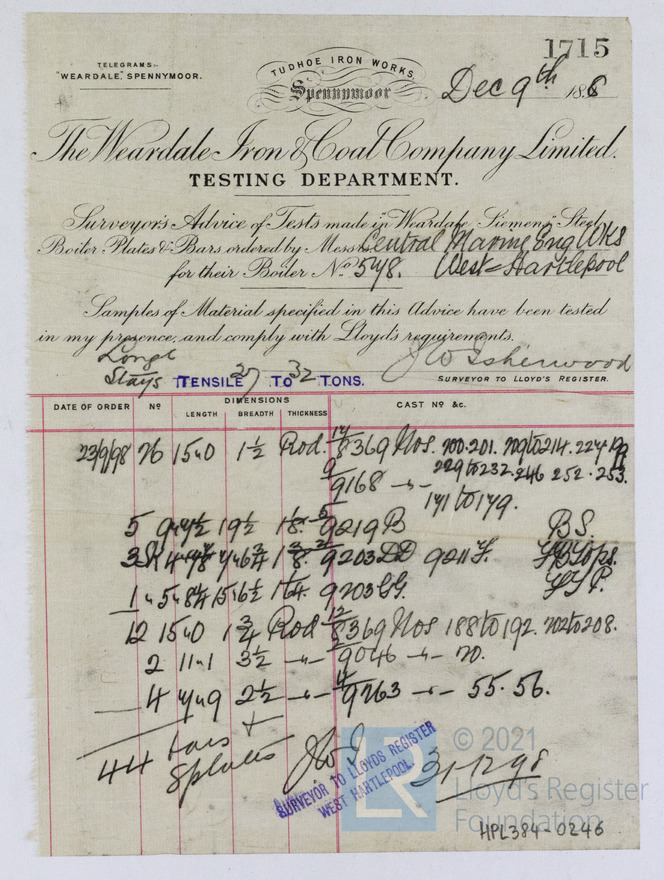 1715
TELEGRAMS:-
"WEARDALE," SPENNYMOOR.
TUDHOE IRON WORKS,
Spennymoor
Dec 9th 188
The Weardale Iron & Coal Company Limited.
TESTING DEPARTMENT.
Surveyor's Advice of Tests made in "Weardale Siemens" Steel
Boiler Plates & Bars ordered by Mess Central Marine Eng Wks
for their Boiler No 548. West Hartlepool
Samples of Material specified in this Advice have been tested
in my presence, and comply with Lloyd's requirements.
Longl
Stays TENSILE 27 TO 32 TONS.
J W Isherwood
SURVEYOR TO LLOYD'S REGISTER.
DATE OF ORDER No DIMENSIONS CAST No &c.
LENGTH BREADTH THICKNESS
23/9/98 26 15"0 1½ Rod. 17/8369 Nos. 200-201. 209 to 214. 224
9/9168 -"- 229 to 232. 246 252. 253.
171 to 179.
5 19½ 9219 B B S.
9203 DD 9211 F. Tops.
1 9203
12 15"0 1¾ Rod 12/8369 Nos 188 to 192. 202 to 208.
2 11"1 3½ -"- 2/9046 -"- 70.
4 2½ -"- 9263 -"- 55. 56.
44 bars +
8 plates
J W I
SURVEYOR TO LLOYDS REGISTER
WEST HARTLEPOOL.
31.12.98
© 2021
LR
Lloyd's Register
Foundation
HPL384-0246